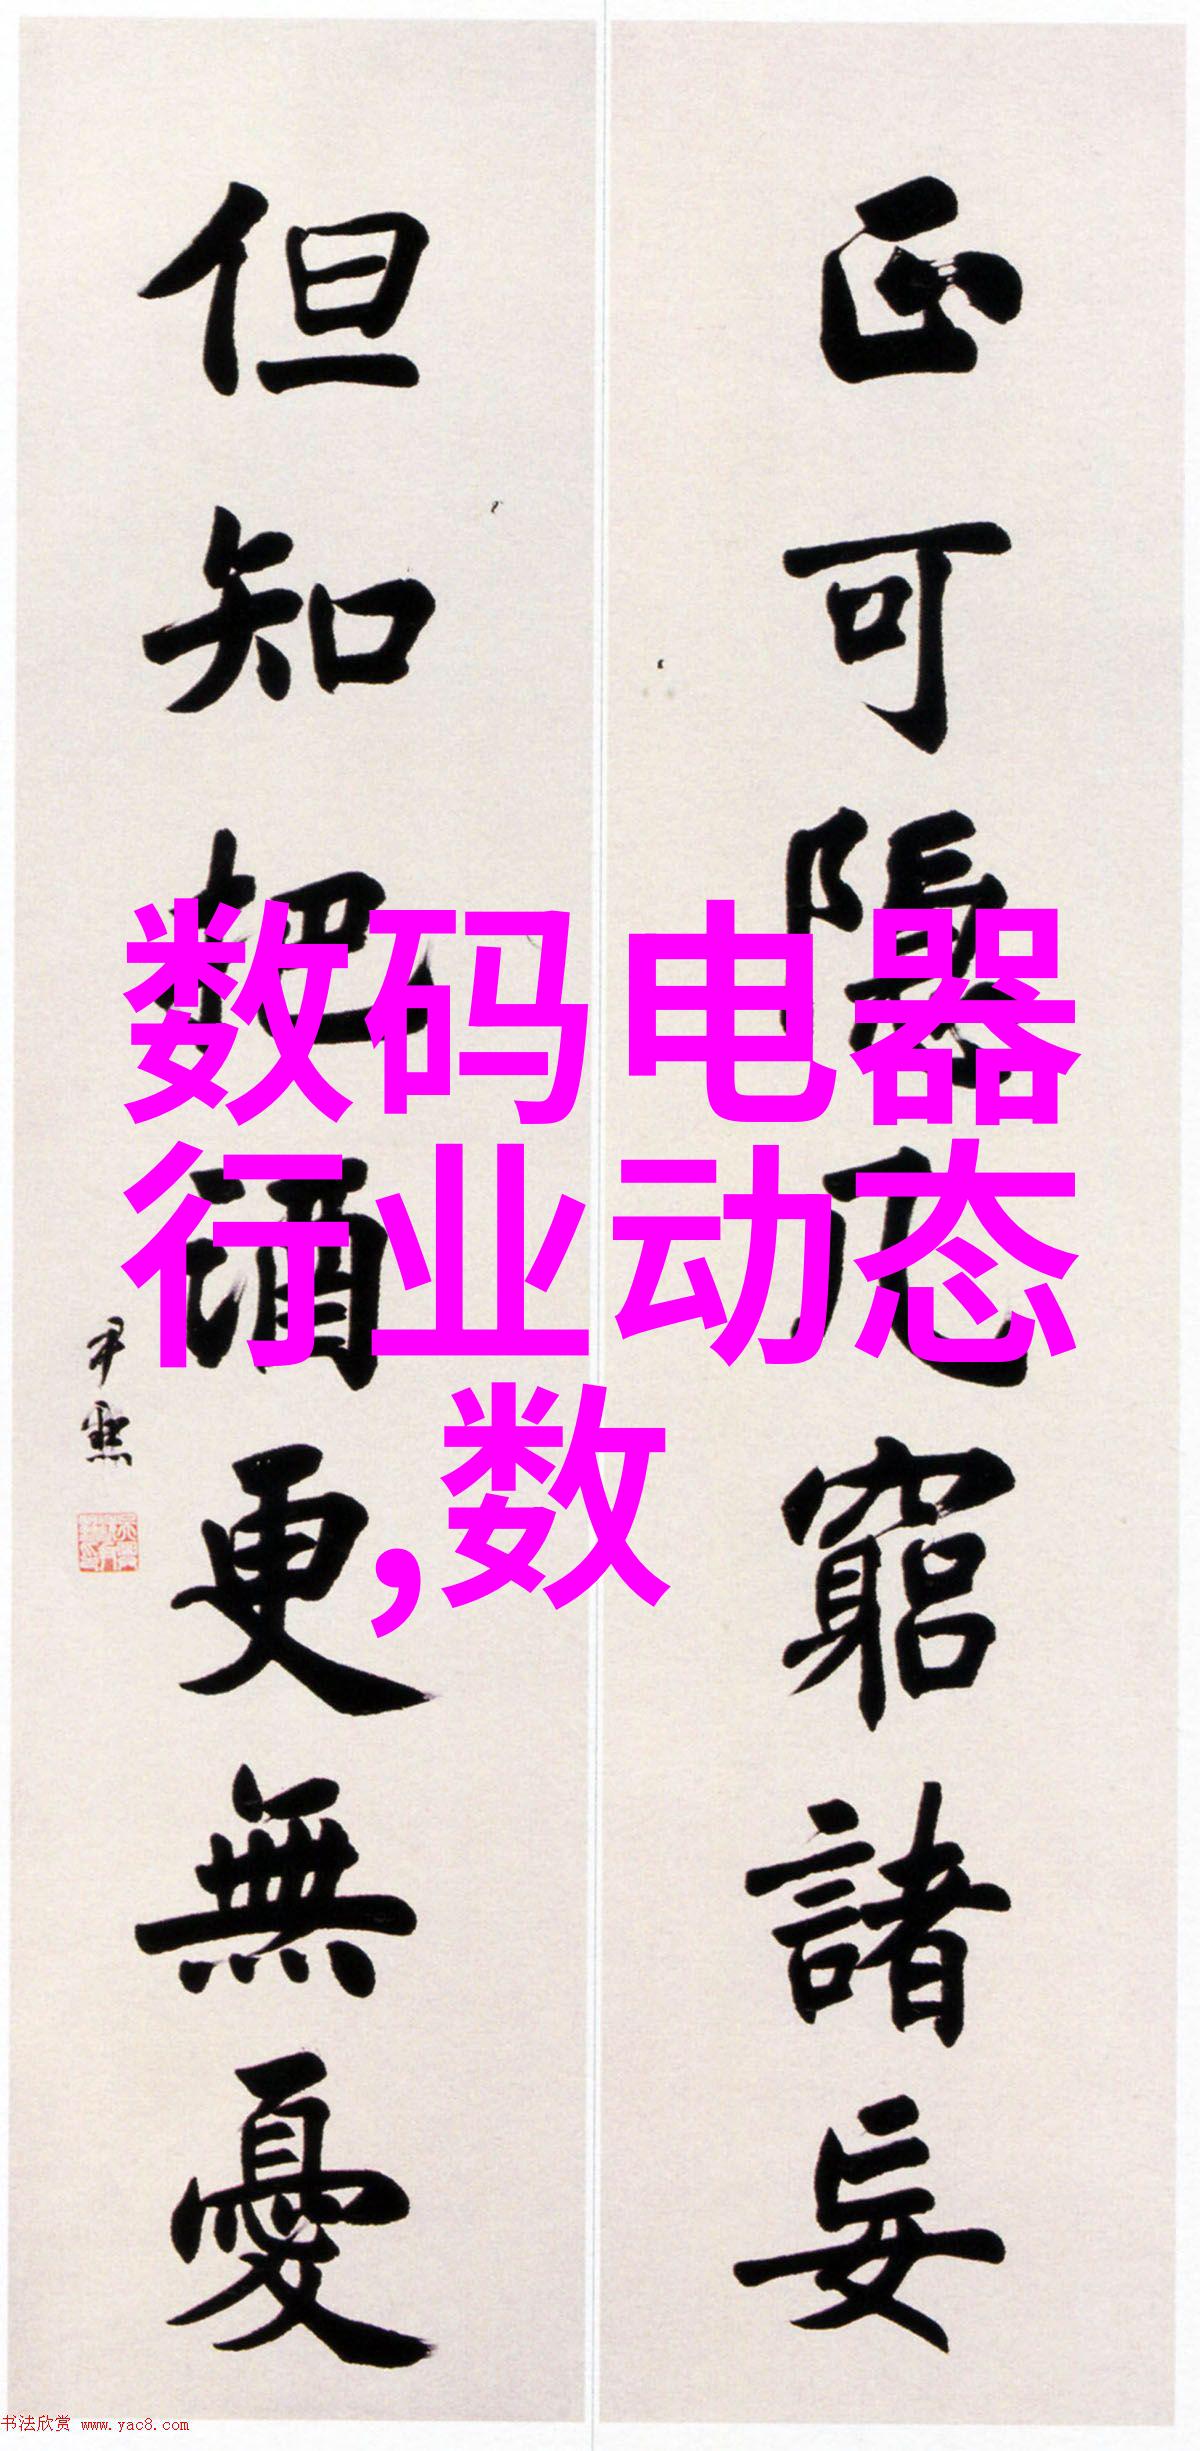 正可隱几窮諸妄
但知把酒更無憂
尹默
数码电器
行业动态
,数
书法欣赏 www.yac8.com